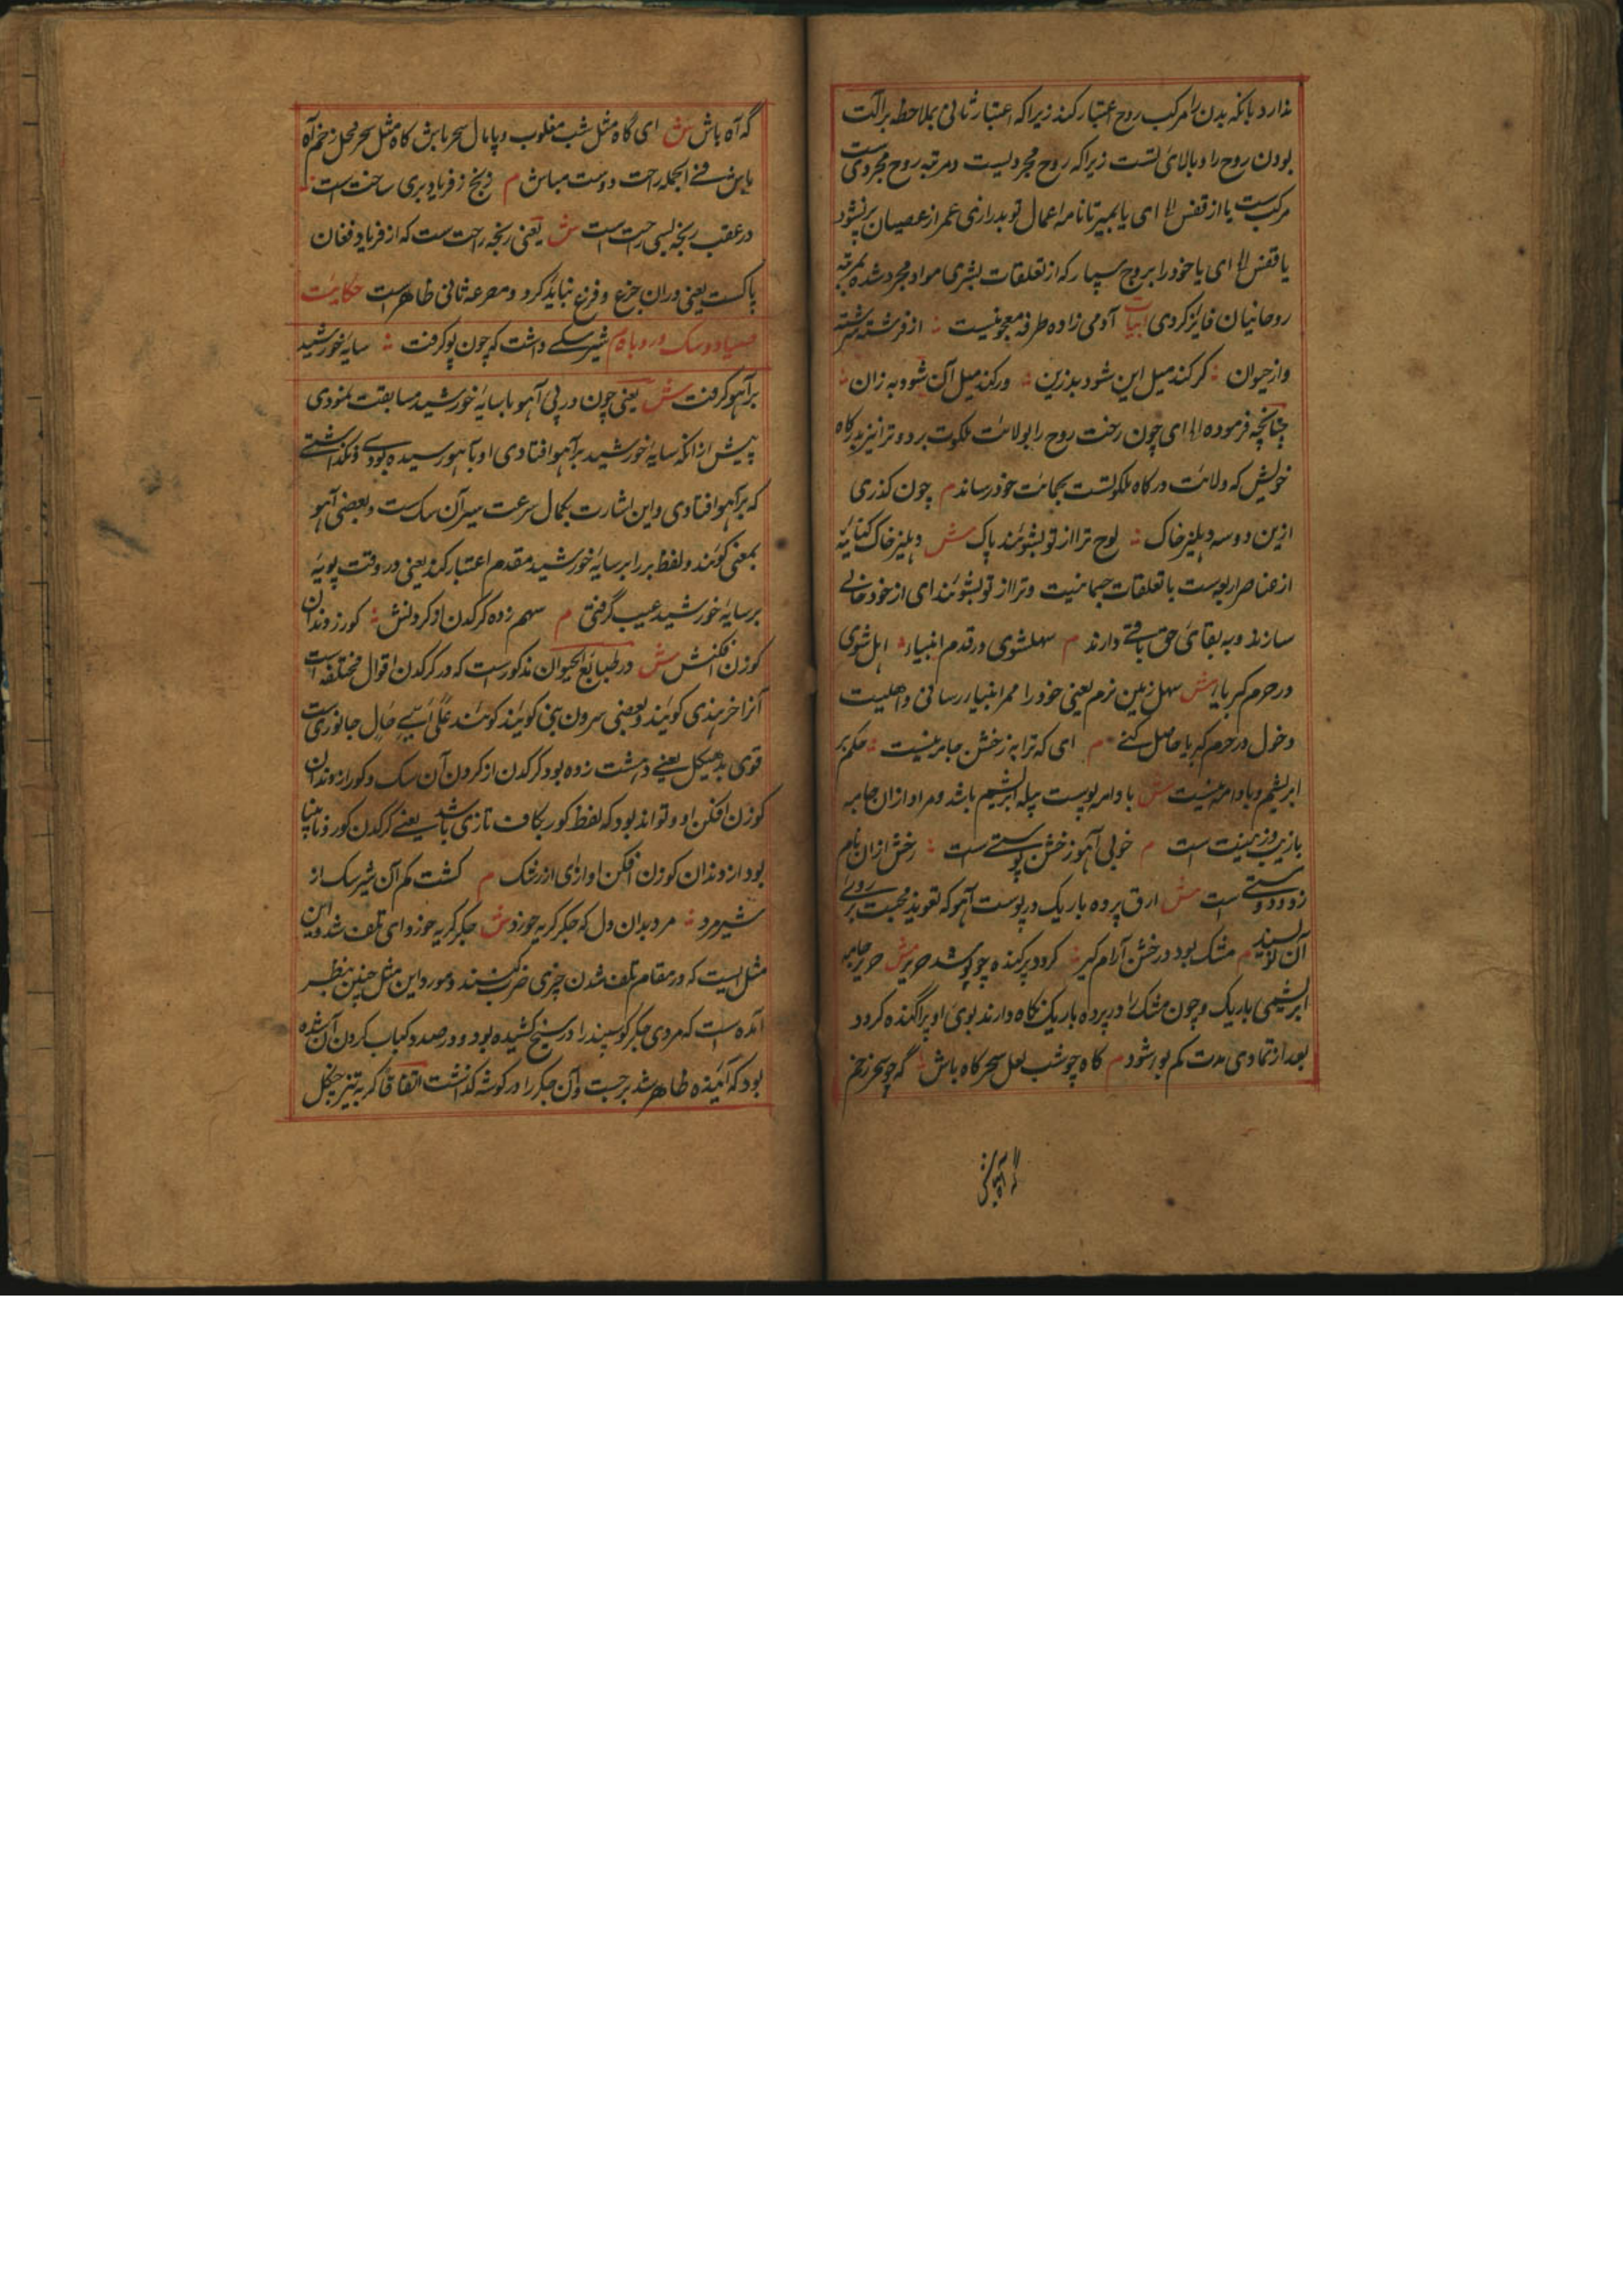 ندارد بانکه بدن را مرکب روح اعتبار کند زیرا که اعتبار ثانی بملاحظه برالت
بودن روح را و بالای تست زیرا که روح مجردیست و مرتبه روح مجردی ست
مرکبست یا از قفس الخ ای یا بمیر تا نامه اعمال تو بدرازی عمر از عصیان پر نشود
یا قفس الخ ای یا خود را بروح سپار که از تعلقات بشری مواد مجرد شده بمرتبه
روحانیان فایز کردی ابیات آدمی زاده طرفه معجونیست از فرشته سرشته
و از حیوان کر کند میل این شود بد زین ور کند میل آن شود به زان
چنانچه فرموده الخ ای چون رخت روح را بولایت ملکوت برد و ترا نیز بدرکاه
خویش که ولایت درکاه ملکوتست بحمایت خود رساند م چون کذری
ازین دو سه دهلیز خاک لوح ترا از تو بشویند پاک ش دهلیز خاک کنایه
از عناصر اربعه است با تعلقات جسمانیت و ترا از تو بشویند ای از خود خالی
سازند و به بقای حق باقی دارند م سهل شوی در قدم انبیاء اهل شوی
در حرم کبریا ش سهل زمین نرم یعنی خود را ممر انبیا رسانی و اهلیت
دخول در حرم کبریا حاصل کنی م ای که ترا به ز خشن جامه نیست حکم بر
ابریشم و بادامه نیست ش بادامه پوست پیله ابریشم باشد و مراد ازان جامه
بازیب و زینت است م خوبی آهو ز خشن پوستی ست رخش ازان نام
زد دوستی است ش ارق پرده باریک در پوست آهو که تعویذ محبت بر روی
آن نویسند م مشک بود در خشن آرام کیر کردد پرکنده چو پوشد حریر ش حریر جامه
ابریشمی باریک و چون مشک را در پرده باریک نکاه دارند بوی او پراکنده کردد
بعد از تمادی مدت کم بو شود م کاه چو شب نعل سحرکاه باش گه چو سحر زخم
گه آه باش
گه آه باش ش ای گاه مثل شب مغلوب و پامال سحر باش کاه مثل سحر محل زخم آه
باش فی الجمله راحت دوست مباش م رنج ز فریاد بری ساحت است
در عقب رنجه بسی راحت است ش یعنی رنجه راحت ست که از فریاد و فغان
پاکست یعنی دران جزع و فزع نباید کرد و مصرعه ثانی ظاهرست حکایت
صیاد و سک و روباه م شیر سکی داشت که چون پو کرفت سایه خورشید
بر آهو کرفت ش یعنی چون در پی آهو با سایه خورشید مسابقت نمودی
پیش از انکه سایه خورشید بر آهو افتادی او بآهو رسیده بودی و نکذاشتی
که بر آهو افتادی و این اشارت بکمال سرعت سیر آن سک ست و بعضی آهو
بمعنی کویند و لفظ بر را بر سایه خورشید مقدم اعتبار کنند یعنی در وقت پویه
بر سایه خورشید عیب گرفتی م سهم زده کرکدن از کردنش کور ز دندان
کوزن افکنش ش در طبایع الحیوان مذکورست که در کرکدن اقوال مختلفه است
آنرا خر هندی کویند و بعضی سرون بینی کویند کویند علی ای حال جانوری ست
قوی بد هیکل یعنی دهشت زده بود کرکدن از کردن آن سک و کور از دندان
کوزن افکن او و تواند بود که لفظ کور بکاف تازی باشد یعنی کرکدن کور و نابینا
بود از دندان کوزن افکن او ازی از رشک م کشت کم آن شیر سک از
شیر مرد مرد بدان دل که جکر کربه خورد ش جکر کربه خورد ای تلف شد و این
مثل ایست که در مقام تلف شدن چیزی ضرب کنند و مورد این مثل چنین بنظر
آمده است که مردی جکر کوسپند را در سیخ کشیده بود و در صدد کباب کردن آن شده
بود که آینده ظاهر شد برجست و آن جکر را در کوشه کذاشت اتفاقا کربه تیز چنکل